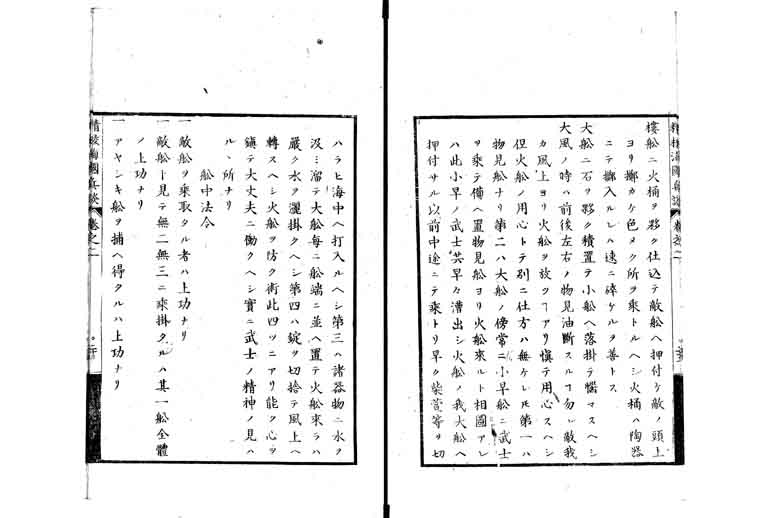 樓船ニ火桶ヲ夥ク仕込テ敵船ヘ押付ケ敵ノ頭上
ヨリ擲カケ色メク所ヲ乘トルヘシ火桶ハ陶器
ニテ擲入ルレハ速ニ碎ケルヲ善トス
大船ニ石ヲ夥ク積置テ小船ヘ落掛テ惱マスヘシ
大風ノ時ハ前後左右ノ物見油斷スルヿ勿レ敵我
カ風上ヨリ火船ヲ放ツヿアリ愼テ用心スヘシ
但火船ノ用心トテ別ニ仕方ハ無ケレ𪜈第一ハ
物見船ナリ第二ハ大船ノ傍ニ小早船ニ武士
ヲ乘テ備ヘ置物見船ヨリ火船來ルト相圖アレ
ハ此小早ノ武士共早々漕出シ火船ノ我大船ヘ
押付サル以前中途ニテ乘トリ早ク柴萱等ヲ切
ハラヒ海中ヘ打入ルヘシ第三ハ諸器物ニ水ヲ
汲ミ溜テ大船毎ニ船端ニ並ヘ置テ火船來ラハ
嚴ク水ヲ灑掛クヘシ第四ハ錠ヲ切捨テ風上ヘ
轉スヘシ火船ヲ防ク術此四ツニアリ能ク心ヲ
鎭テ大丈夫ニ働クヘシ實ニ武士ノ精神ノ見ハ
ルヽ所ナリ
船中法令
一敵船ヲ乘取タル者ハ上功ナリ
一敵船ト見テ無二無三ニ乘掛タルハ其一船全體
ノ上功ナリ
一アヤシキ船ヲ捕ヘ得タルハ上功ナリ
精校海國兵談 卷之二